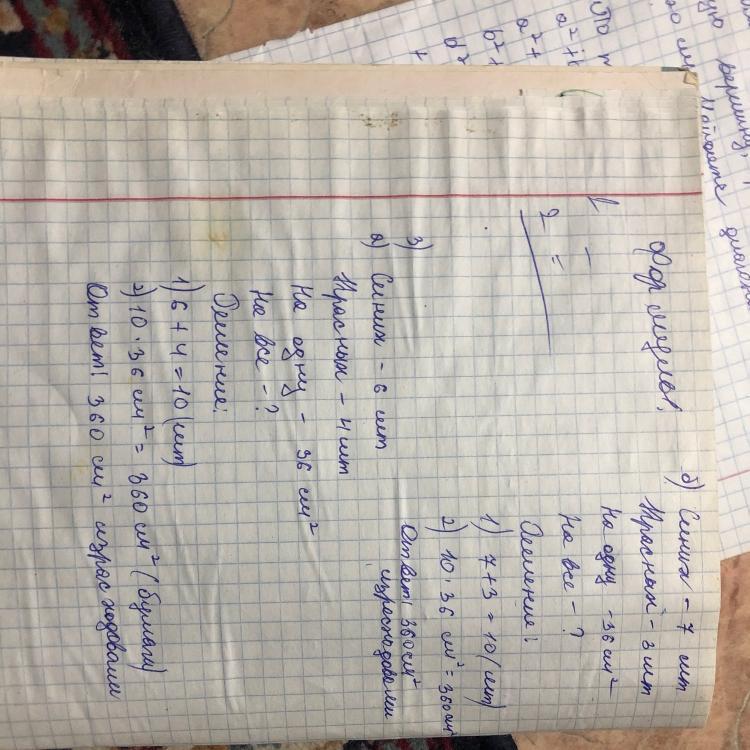 Формулы.
1 –
2 =
3)
а) Синих – 6 шт
Красных – 4 шт
На одну – 36 см²
На все – ?
Решение:
1) 6 + 4 = 10 (шт)
2) 10 · 36 см² = 360 см² (бумаги)
Ответ: 360 см² израсходовали
б) Синих – 7 шт
Красных – 3 шт
На одну – 36 см²
На все – ?
Решение:
1) 7 + 3 = 10 (шт)
2) 10 · 36 см² = 360 см²
Ответ: 360 см²
израсходовали
вершину,
Найдите